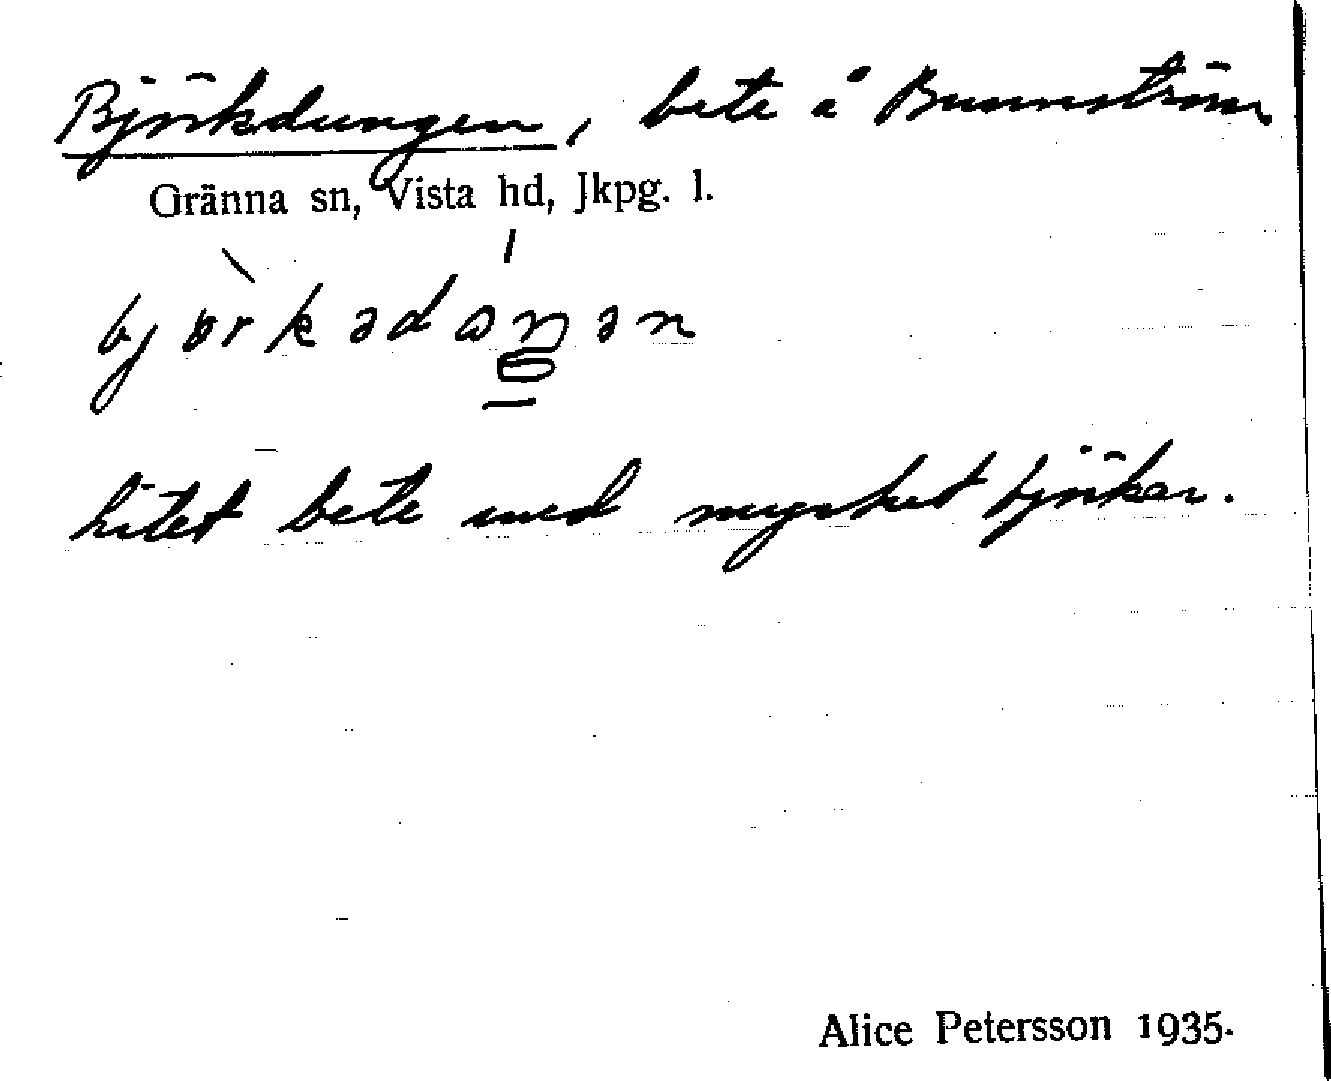 Björkdungen, bete å Bunnström
Gränna sn, Vista hd, Jkpg. l.
björkadɷŋən
litet bete med mycket björkar.
Alice Petersson 1935.